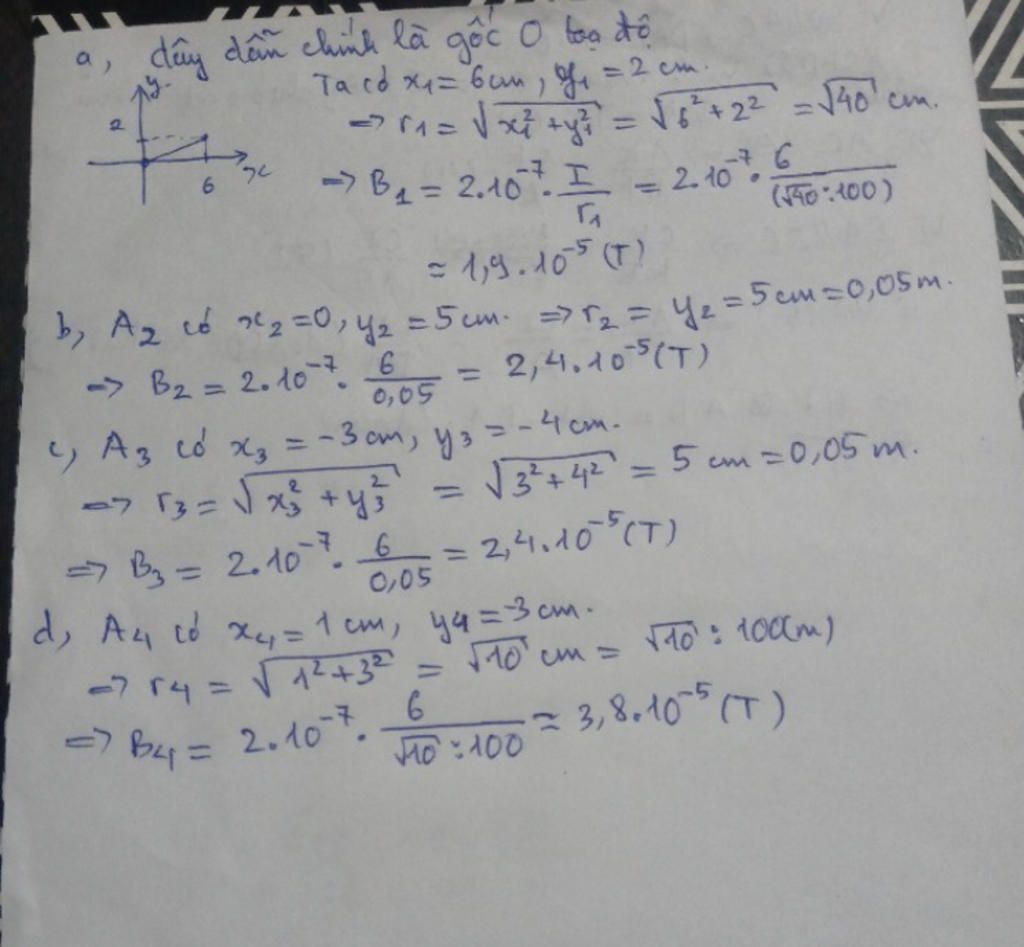 a, dây dẫn chính là gốc O toạ độ
y
2
6
x
Ta có x₁ = 6cm, y₁ = 2 cm.
=> r₁ = √(x₁² + y₁²) = √(6² + 2²) = √40 cm.
=> B₁ = 2.10⁻⁷. I/r₁ = 2.10⁻⁷. 6/(√40:100)
= 1,9.10⁻⁵ (T)
b, A₂ có x₂=0, y₂ = 5cm. => r₂ = y₂ = 5cm = 0,05m.
=> B₂ = 2.10⁻⁷. 6/0,05 = 2,4.10⁻⁵(T)
c, A₃ có x₃ = -3cm, y₃ = -4cm.
=> r₃ = √(x₃² + y₃²) = √(3² + 4²) = 5 cm = 0,05m.
=> B₃ = 2.10⁻⁷. 6/0,05 = 2,4.10⁻⁵(T)
d, A₄ có x₄ = 1cm, y₄ = -3cm.
=> r₄ = √(1²+3²) = √10 cm = √10 : 100(m)
=> B₄ = 2.10⁻⁷. 6/√10:100 ≈ 3,8.10⁻⁵ (T)